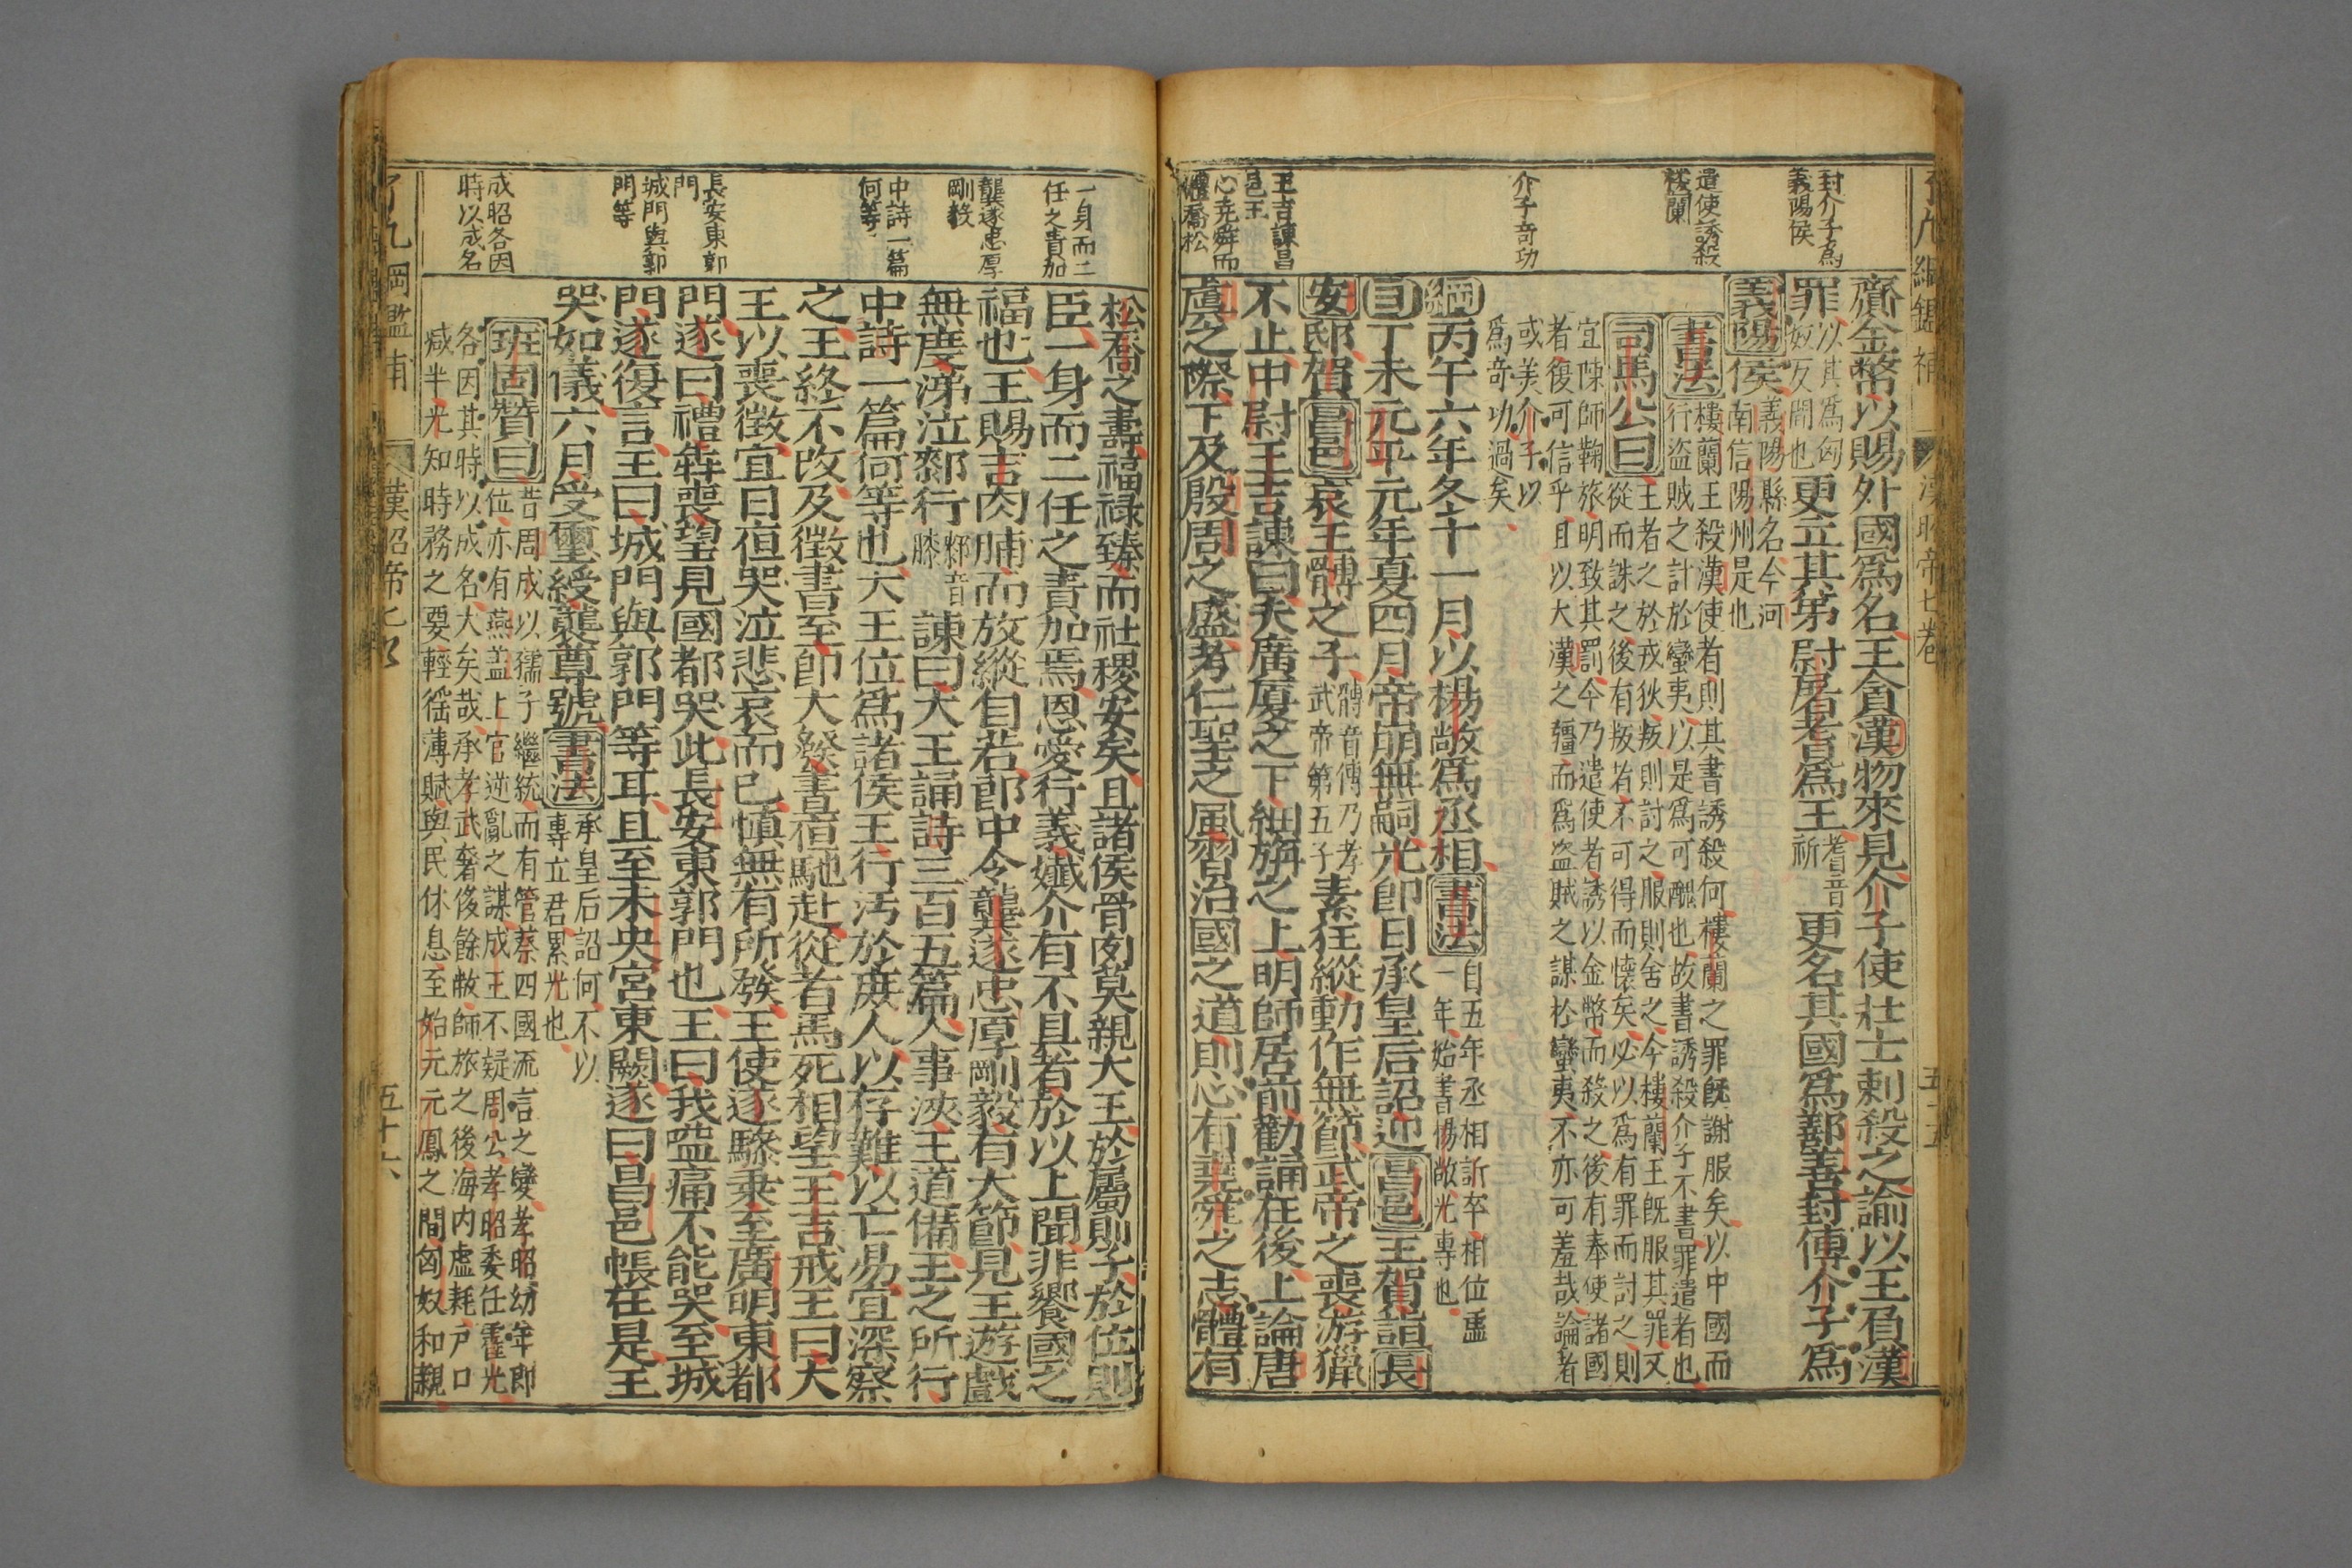 封介子為
義陽侯
遣使誘殺
樓蘭
介子奇功
王吉諫昌
邑王
心堯舜而
體喬松
齎金幣以賜外國爲名王貪漢物來見介子使壯士刺殺之諭以王負漢
罪以其爲匈奴反間也更立其弟尉屠耆爲王耆音祈更名其國爲鄯善封傅介子爲
義陽侯義陽縣名今河南信陽州是也
書法樓蘭王殺漢使者則其書誘殺何樓蘭之罪旣謝服矣以中國而
行盜賊之計於蠻夷以是爲可醜也故書誘殺介子不書罪遣者也
司馬公曰王者之於戎狄叛則討之服則舍之今樓蘭王旣服其罪又
從而誅之後有叛者不可得而懷矣必以爲有罪而討之則
宜陳師鞠旅明致其罰今乃遣使者誘以金幣而殺之後有奉使諸國
者復可信乎且以大漢之彊而爲盜賊之謀於蠻夷不亦可羞哉論者
或美介子以
爲奇功過矣
綱丙午六年冬十一月以楊敞爲丞相書法自五年丞相訢卒相位虛
一年始書楊敞光專也
目丁未元平元年夏四月帝崩無嗣光卽日承皇后詔迎昌邑王賀詣長
安邸賀昌邑哀王髆之子髆音博乃孝武帝第五子素狂縱動作無節武帝之喪游獵
不止中尉王吉諫曰夫廣厦之下細旃之上明師居前勸誦在後上論唐
虞之際下及殷周之盛考仁聖之風習治國之道則心有堯舜之志體有
漢昭帝七卷
五十五
一身而二
任之責加
龔遂忠厚
剛毅
中詩一篇
何等
長安東郭
門
城門與郭
門等
成昭各因
時以成名
松喬之壽福祿臻而社稷安矣且諸侯骨肉莫親大王於屬則子於位則
臣一身而二任之責加焉恩愛行義孅介有不具者於以上聞非饗國之
福也王賜吉肉脯而放縱自若郎中令龔遂忠厚剛毅有大節見王遊戲
無度涕泣䣛行䣛音膝諫曰大王誦詩三百五篇人事浹王道備王之所行
中詩一篇何等也大王位爲諸侯王行汚於庶人以存難以亡易宜深察
之王終不改及徵書至卽大發晝宿馳赴從者馬死相望王吉戒王曰大
王以喪徵宜日夜哭泣悲哀而已愼無有所發王使遂驂乘至廣明東都
門遂曰禮奔喪望見國都哭此長安東郭門也王曰我嗌痛不能哭至城
門遂復言王曰城門與郭門等耳且至未央宮東闕遂曰昌邑帳在是王
哭如儀六月受璽綬襲尊號書法承皇后詔何不以
專立君累光也
班固贊曰昔周成以孺子繼統而有管蔡四國流言之變孝昭幼年卽
位亦有燕盖上官逆亂之謀成王不疑周公孝昭委任霍光
各因其時以成名大矣哉承孝武奢侈餘敝師旅之後海內虛耗戶口
减半光知時務之要輕徭薄賦與民休息至始元元鳳之間匈奴和親
了凡綱鑑補
漢昭帝七卷
五十六